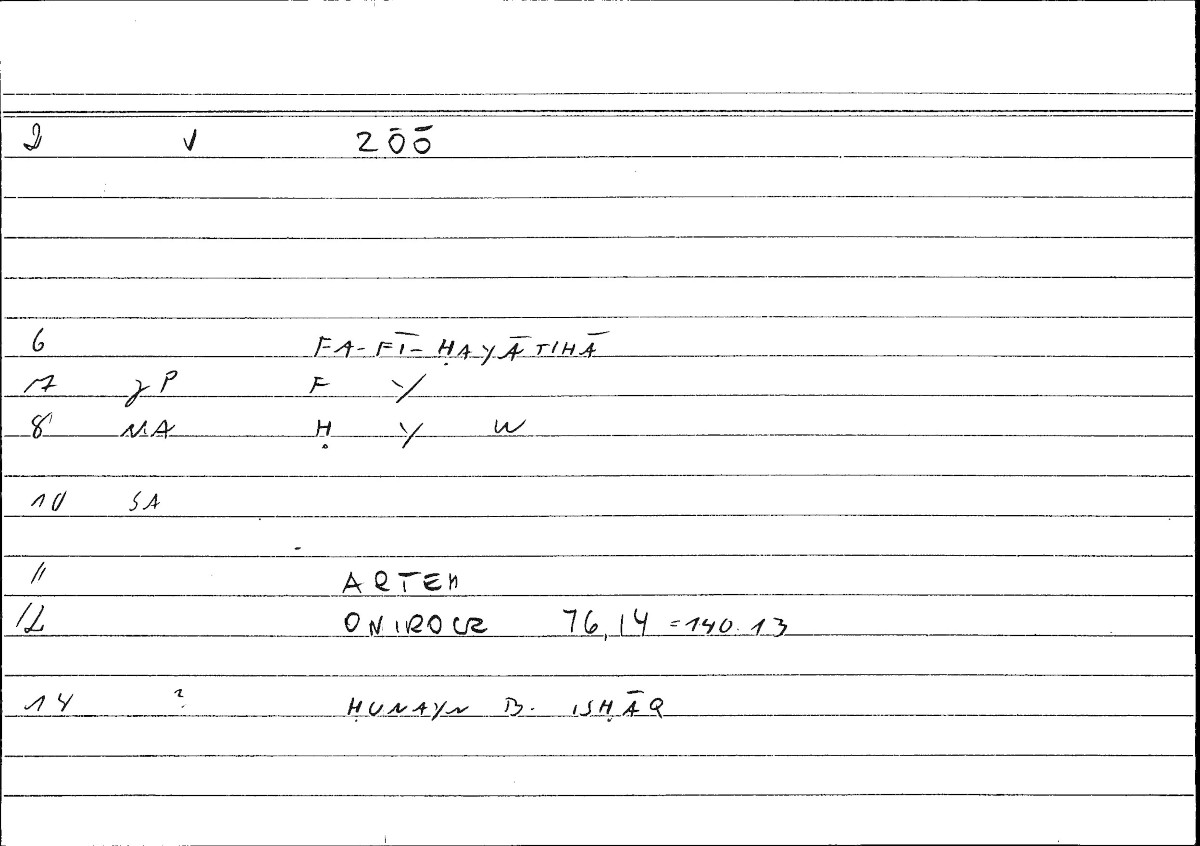 2 V ZŌŌ
6 FA-FĪ-ḤAYĀTIHĀ
7 γP F Y
8 MA Ḥ Y W
10 SA
11 ARTEM
12 ONIROCR 76,14 =140.13
14 ? ḤUNAYN B. ISḤĀQ